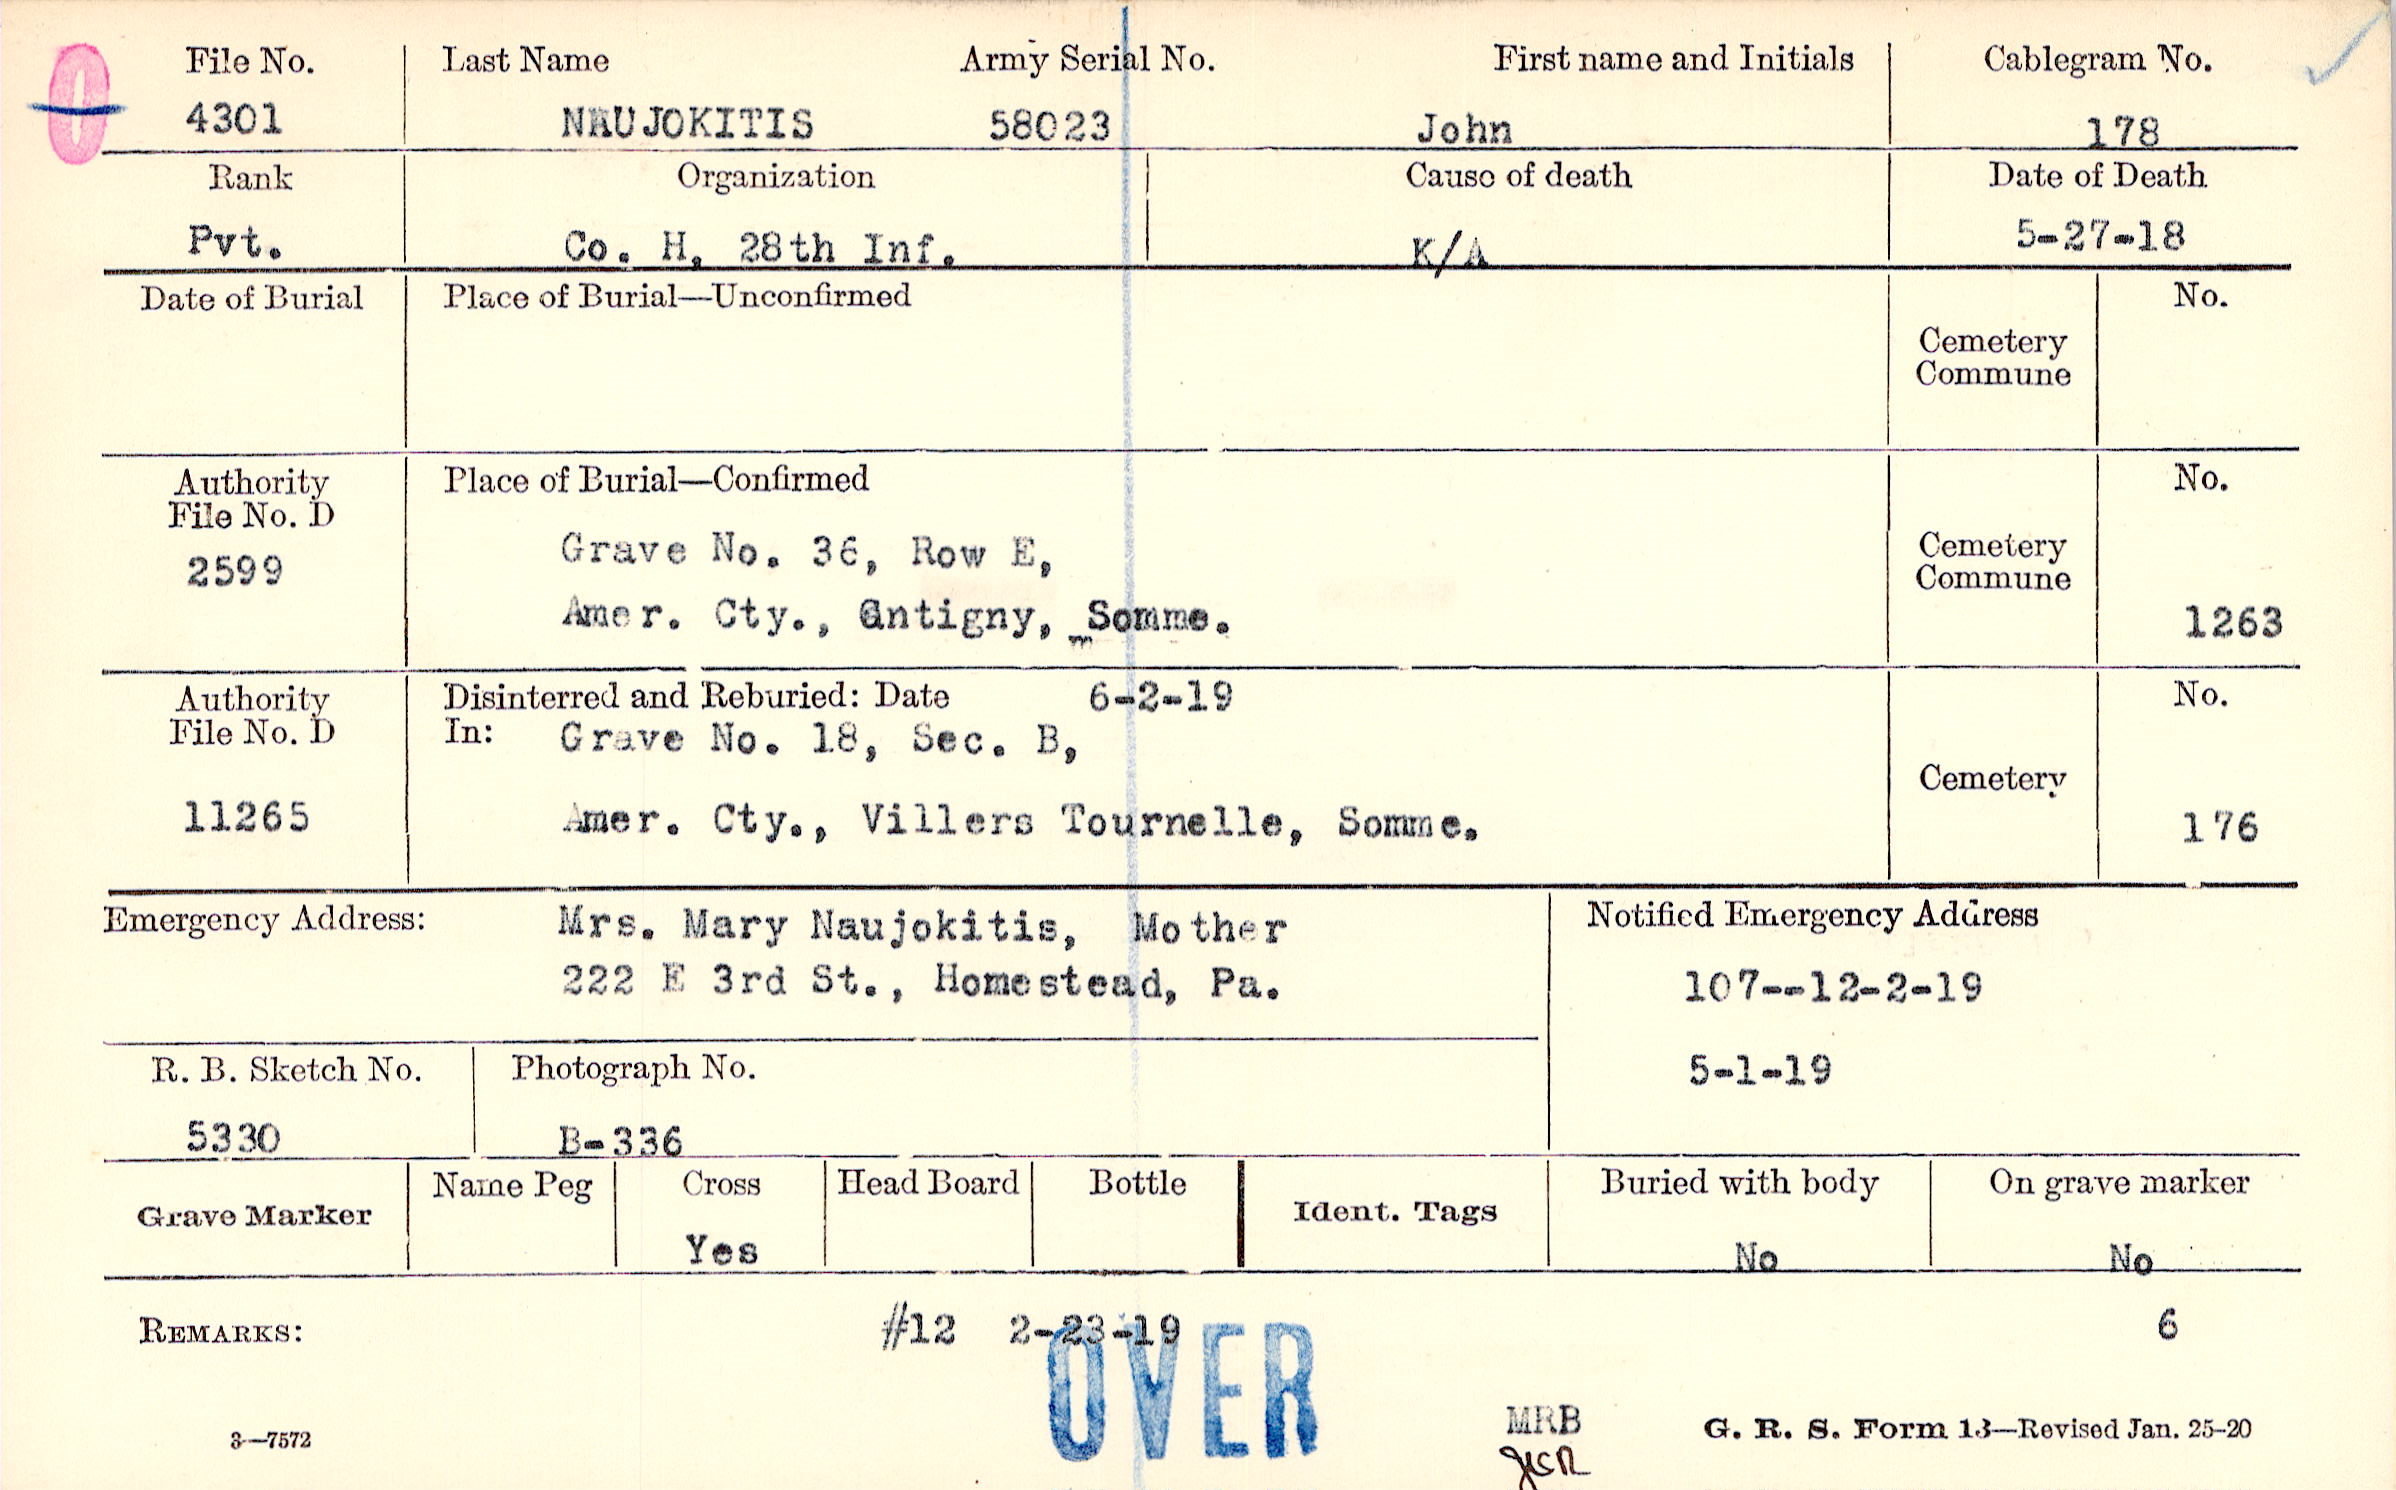 0
File No. Last Name Army Serial No. First name and Initials Cablegram No.
4301 NAUJOKITIS 58023 John 178
Rank Organization Cause of death Date of Death
Pvt. Co. H, 28th Inf. K/A 5-27-18
Date of Burial Place of Burial—Unconfirmed No.
Cemetery
Commune
Authority Place of Burial—Confirmed No.
File No. D
2599 Grave No. 36, Row E, Cemetery
Commune
Amer. Cty., Cantigny, Somme. 1263
Authority Disinterred and Reburied: Date 6-2-19 No.
File No. D In: Grave No. 18, Sec. B,
Cemetery
11265 Amer. Cty., Villers Tournelle, Somme. 176
Emergency Address: Mrs. Mary Naujokitis, Mother Notified Emergency Address
222 E 3rd St., Homestead, Pa. 107--12-2-19
R. B. Sketch No. Photograph No. 5-1-19
5330 B-336
Grave Marker Name Peg Cross Head Board Bottle Ident. Tags Buried with body On grave marker
Yes No No
REMARKS: #12 2-23-19 6
OVER
3—7572 MRB G. R. S. Form 13—Revised Jan. 25-20